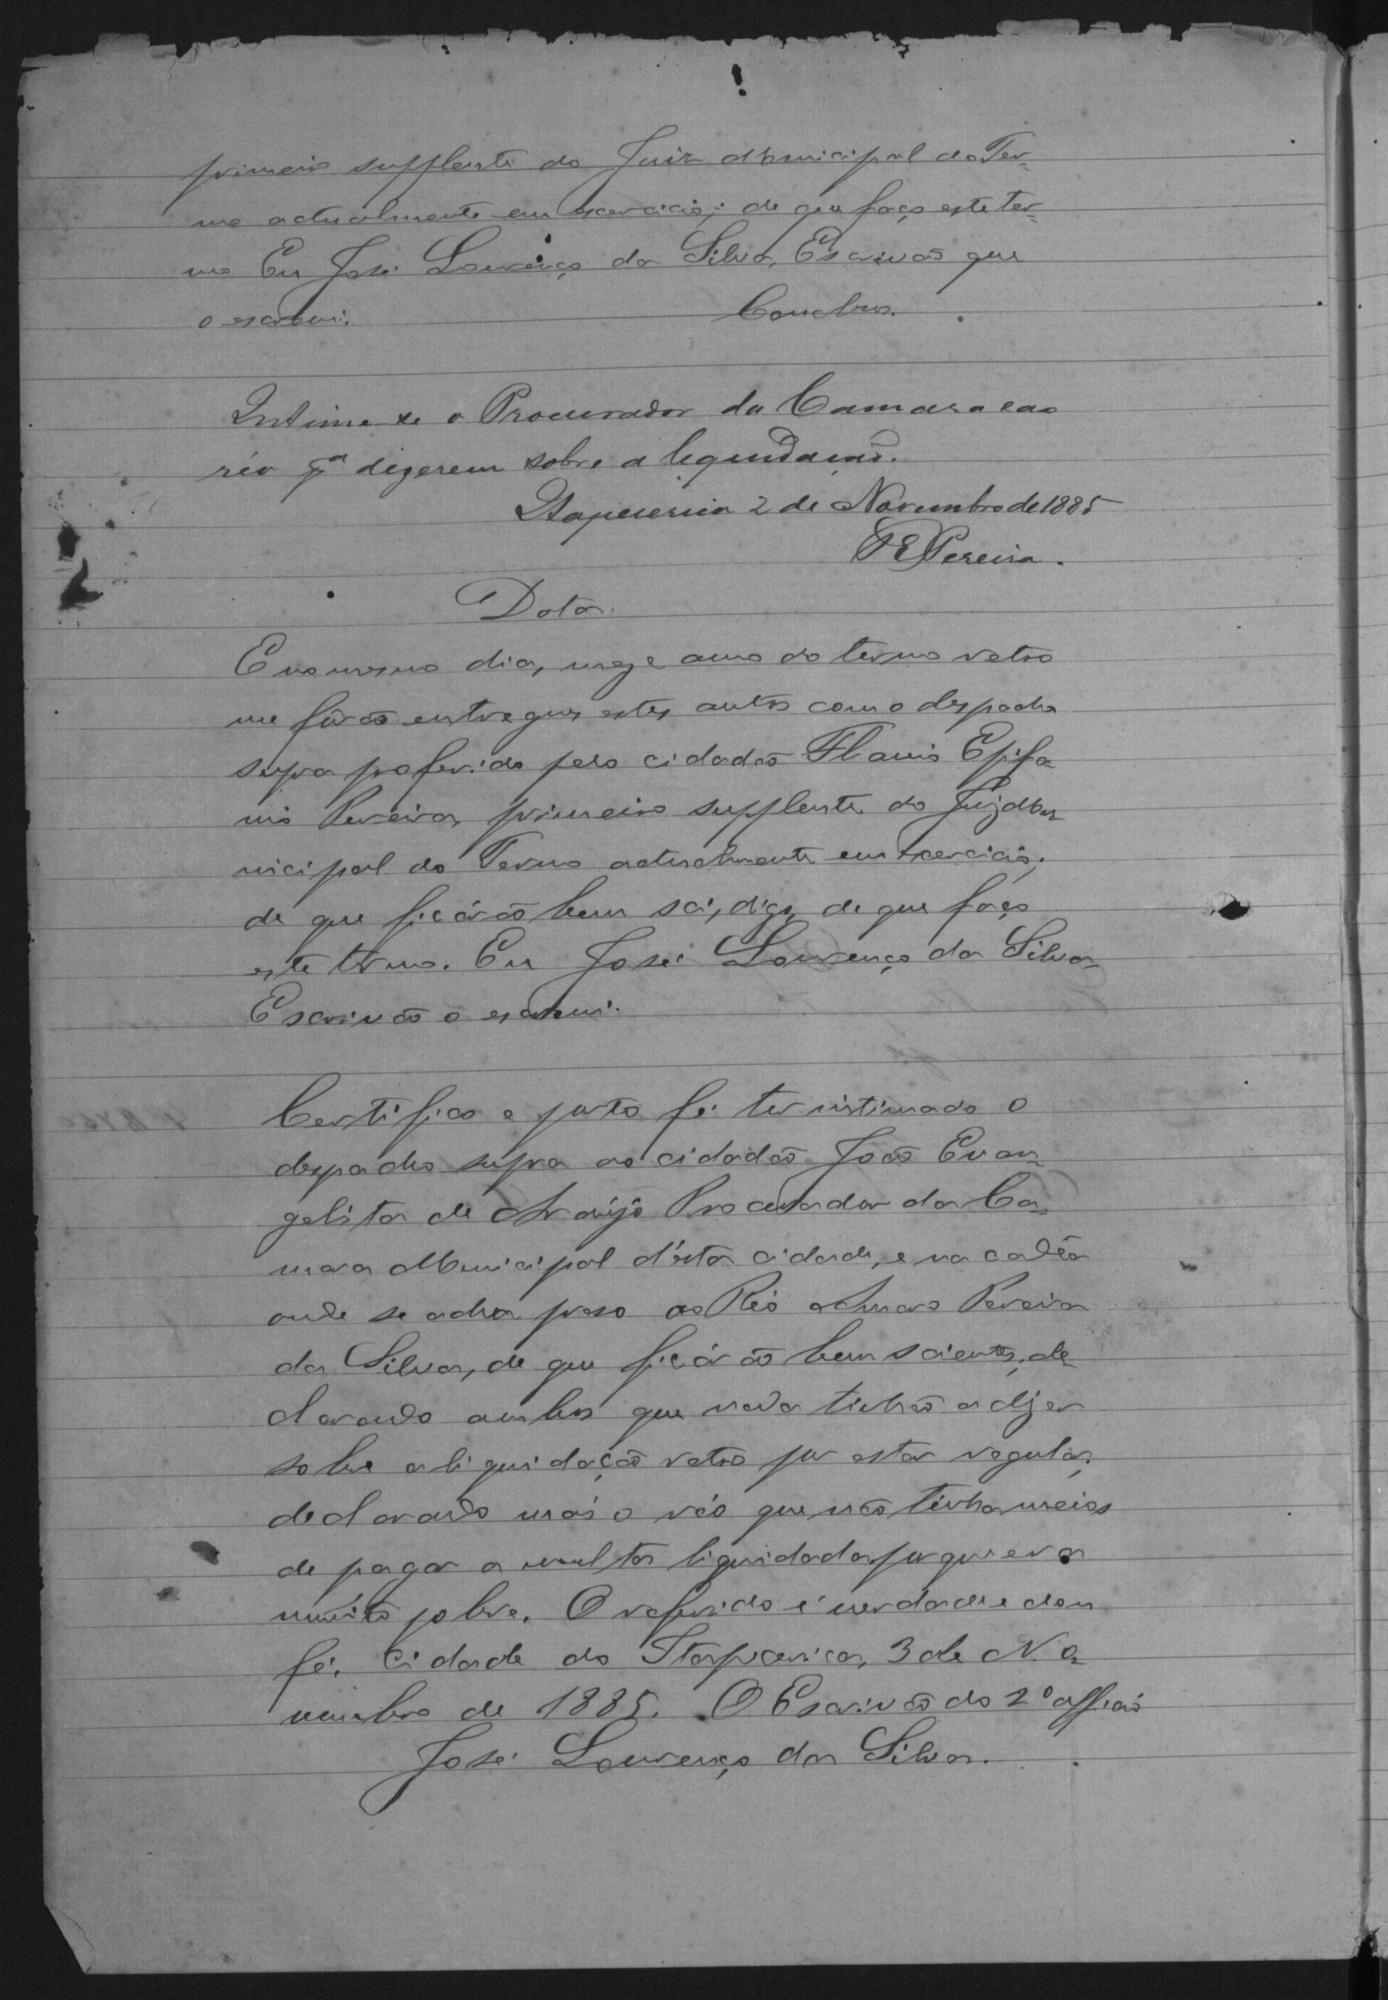 primeiro supplente do Juiz Municipal do Ter=
mo actualmente em exercicio; de que faço este ter=
mo Eu José Lourenço da Silva, Escrivão que
o escrevi. Conclusos.
Intime-se o Procurador da Camara e ao
réo pª dizerem sobre a liquidação.
Itapecerica 2 de Novembro de 1885
FEPereira.
Data.
E no mesmo dia, mez e anno do termo retro
me fôrão entregues estes autos com o despacho
supra proferido pelo cidadão Flavio Epifa
nio Pereira, primeiro supplente do Juiz Mu
nicipal do Termo actualmente em exercicio;
de que ficárão bem sci, digo, de que faço
este termo. Eu José Lourenço da Silva
Escrivão o escrevi.
Certifico e porto fé ter intimado o
despacho supra ao cidadão João Evan=
gelista de Araújo Procurador da Ca=
mara Municipal d'esta cidade, e na cadêa
onde se acha preso ao Réo Pereira
da Silva, de que ficárão bem scientes, de=
clarando ambos que nada tinhão a dizer
sobre a liquidação retro por estar regular,
declarando mais o réo que não tinha meios
de pagar a multa liquidada porque era
muito pobre. O referido é verdade e dou
fé. Cidade do Itapecerica, 3 de No=
vembro de 1885. O Escrivão do 2º officio
José Lourenço da Silva.